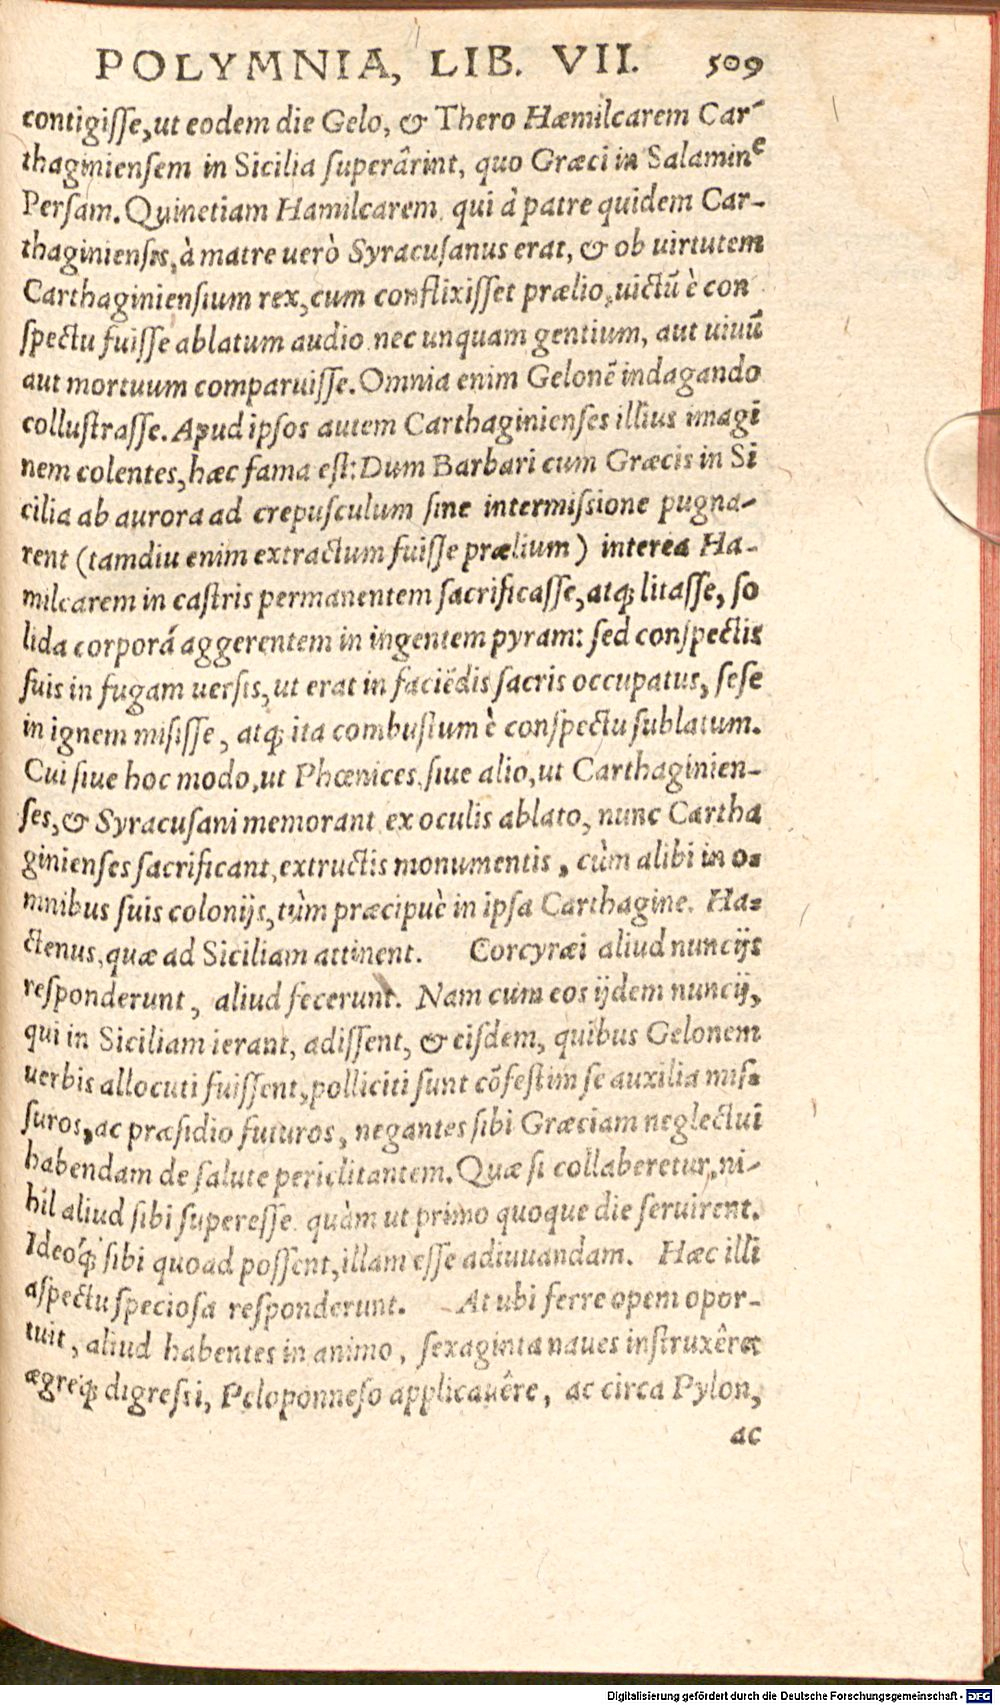 POLYMNIA, LIB. VII. 509
contigiſſe, ut eodem die Gelo, & Thero Hæmilcarem Car-
thaginienſem in Sicilia ſuperârint, quo Græci in Salamine
Perſam. Quinetiam Hamilcarem qui à patre quidem Car-
thaginienſis, à matre uerò Syracuſanus erat, & ob uirtutem
Carthaginienſium rex, cum conflixiſſet prælio, uictū è con
ſpectu fuiſſe ablatum audio nec unquam gentium, aut uiuū
aut mortuum comparuiſſe. Omnia enim Gelonē indagando
colluſtraſſe. Apud ipſos autem Carthaginienſes illius imagi
nem colentes, hæc fama eſt: Dum Barbari cum Græcis in Si
cilia ab aurora ad crepuſculum ſine intermiſsione pugna-
rent (tamdiu enim extractum fuiſſe prælium) interea Ha-
milcarem in caſtris permanentem ſacrificaſſe, atq; litaſſe, ſo
lida corpora aggerentem in ingentem pyram: ſed conſpectis
ſuis in fugam uerſis, ut erat in faciēdis ſacris occupatus, ſeſe
in ignem miſiſſe, atq; ita combuſtum è conſpectu ſublatum.
Cui ſiue hoc modo, ut Phœnices, ſiue alio, ut Carthaginien-
ſes, & Syracuſani memorant ex oculis ablato, nunc Cartha
ginienſes ſacrificant, extructis monumentis, cùm alibi in o-
mnibus ſuis colonijs, tùm præcipuè in ipſa Carthagine. Ha-
ctenus, quæ ad Siciliam attinent. Corcyræi aliud nuncijs
reſponderunt, aliud fecerunt. Nam cum eos ijdem nuncij,
qui in Siciliam ierant, adiſſent, & eiſdem, quibus Gelonem
uerbis allocuti fuiſſent, polliciti ſunt cōfeſtim ſe auxilia miſ-
ſuros, ac præſidio futuros, negantes ſibi Græciam neglectui
habendam de ſalute periclitantem. Quæ ſi collaberetur, ni-
hil aliud ſibi ſupereſſe quàm ut primo quoque die ſeruirent.
Ideoq́; ſibi quoad poſſent, illam eſſe adiuuandam. Hæc illi
aſpectu ſpecioſa reſponderunt. At ubi ferre opem opor-
tuit, aliud habentes in animo, ſexaginta naues inſtruxêre
ægreq́; digreſsi, Peloponneſo applicauêre, ac circa Pylon,
ac
Digitalisierung gefördert durch die Deutsche Forschungsgemeinschaft - DFG